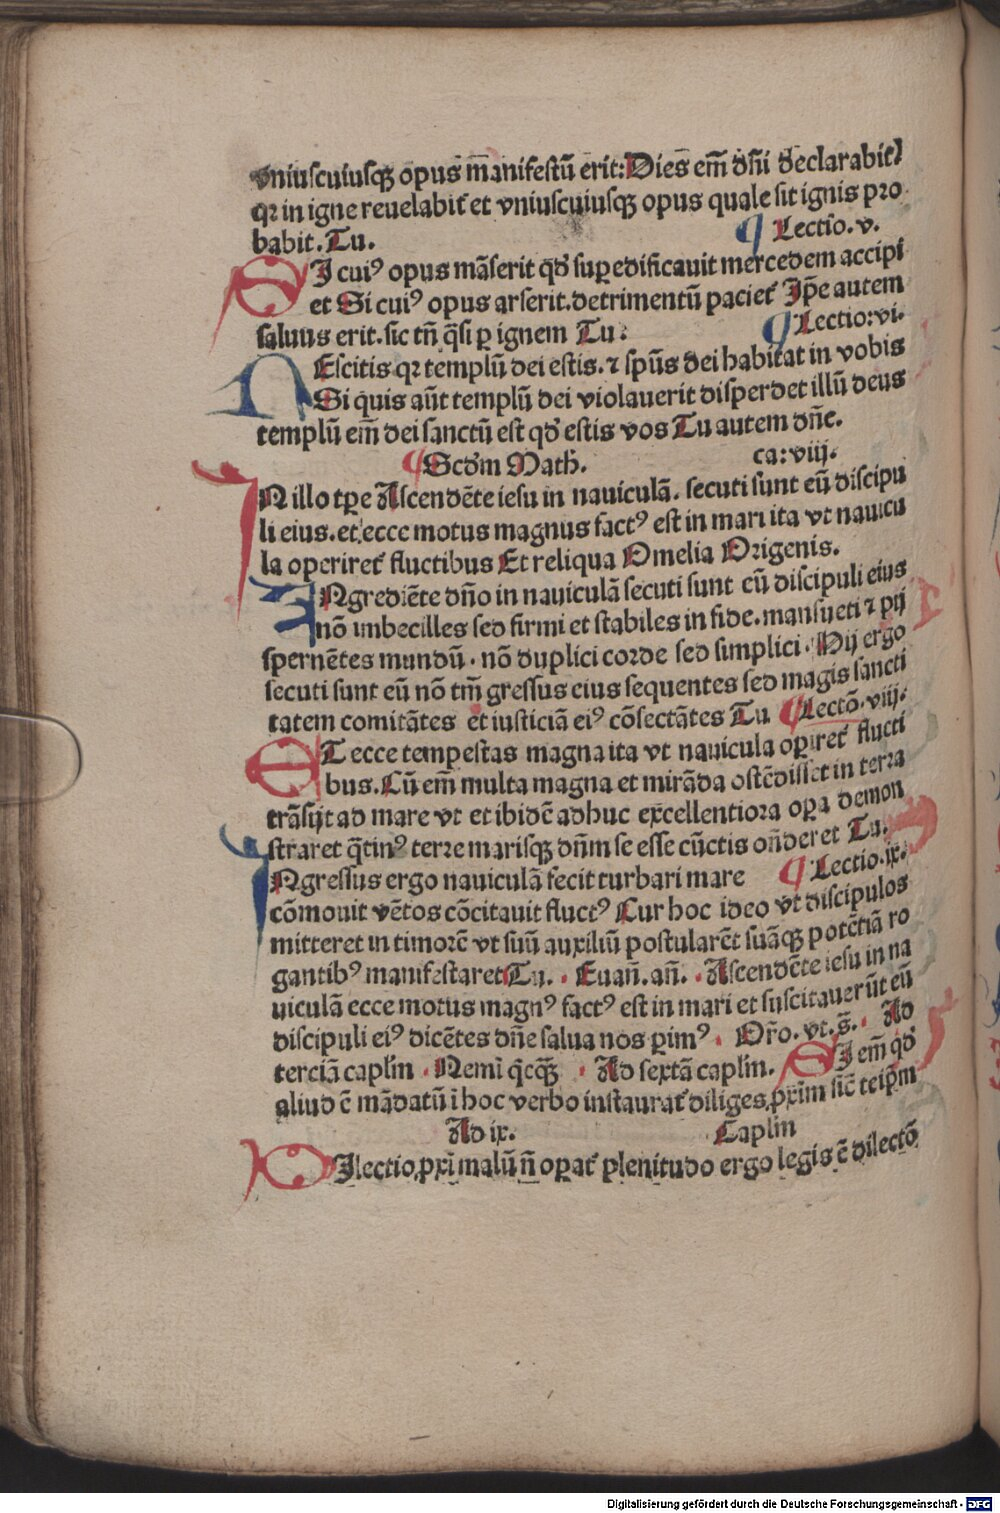 vniuscuiusqꝫ opus manifestũ erit: Dies em̃ dñi declarabit
qꝛ in igne reuelabit̃ et vniuscuiusqꝫ opus quale sit ignis pro
babit. Tu. ¶ Lectio. v.
SI cuiꝰ opus mãserit qď supedificauit mercedem accipi
et Si cuiꝰ opus arserit. detrimentũ paciet̃ Ip̃e autem
saluus erit. sic tñ q̃si ꝑ ignem Tu: ¶ Lectio: vi.
NEscitis qꝛ templũ dei estis. ⁊ spũs dei habitat in vobis
Si quis aũt templũ dei violauerit disperdet illũ deus
templũ em̃ dei sanctũ est qď estis vos Tu autem dñe.
¶ Scďm Math̃. ca: viij.
IN illo tꝑe Ascendẽte iesu in nauiculã. secuti sunt eũ discipu
li eius. et ecce motus magnus factꝰ est in mari ita vt nauicu
la operiret̃ fluctibus Et reliqua Omelia Origenis.
INgrediẽte dño in nauiculã secuti sunt eũ discipuli eius
nõ imbecilles sed firmi et stabiles in fide. mansueti ⁊ pij
spernẽtes mundũ. nõ duplici corde sed simplici. Hij ergo
secuti sunt eũ nõ tm̃ gressus eius sequentes sed magis sancti
tatem comitãtes et iusticiã eiꝰ cõsectãtes Tu ¶ Lectõ. viij.
ET ecce tempestas magna ita vt nauicula oꝑiret̃ flucti
bus. Cũ em̃ multa magna et mirãda ostẽdisset in terra
trãsijt ad mare vt et ibidẽ adhuc excellentiora oꝑa demon
straret q̃tinꝰ terre marisqꝫ dñm se esse cũctis oñderet Tu.
INgressus ergo nauiculã fecit turbari mare ¶ Lectio. ix.
cõmouit vẽtos cõcitauit fluctꝰ Cur hoc ideo vt discipulos
mitteret in timorẽ vt suũ auxiliũ postularẽt suãqꝫ potẽtiã ro
gantibꝰ manifestaret Tu. Euañ. añ. Ascendẽte iesu in na
uiculã ecce motus magnꝰ factꝰ est in mari et suscitauerũt eũ
discipuli eiꝰ dicẽtes dñe salua nos ꝑimꝰ. Or̃o. vt. s̃. Ad
terciã capl̃m. Nemi q̃cqꝫ. Ad sextã capl̃m. SI em̃ qď
aliud ẽ mãdatũ ĩ hoc verbo instaurat̃ diliges ꝓxim̃ sic̃ teip̃m
Ad ix. Capl̃m
DIlectio ꝓxĩ malũ ñ oꝑat̃ plenitudo ergo legis ẽ dilectõ
Digitalisierung gefördert durch die Deutsche Forschungsgemeinschaft - DFG